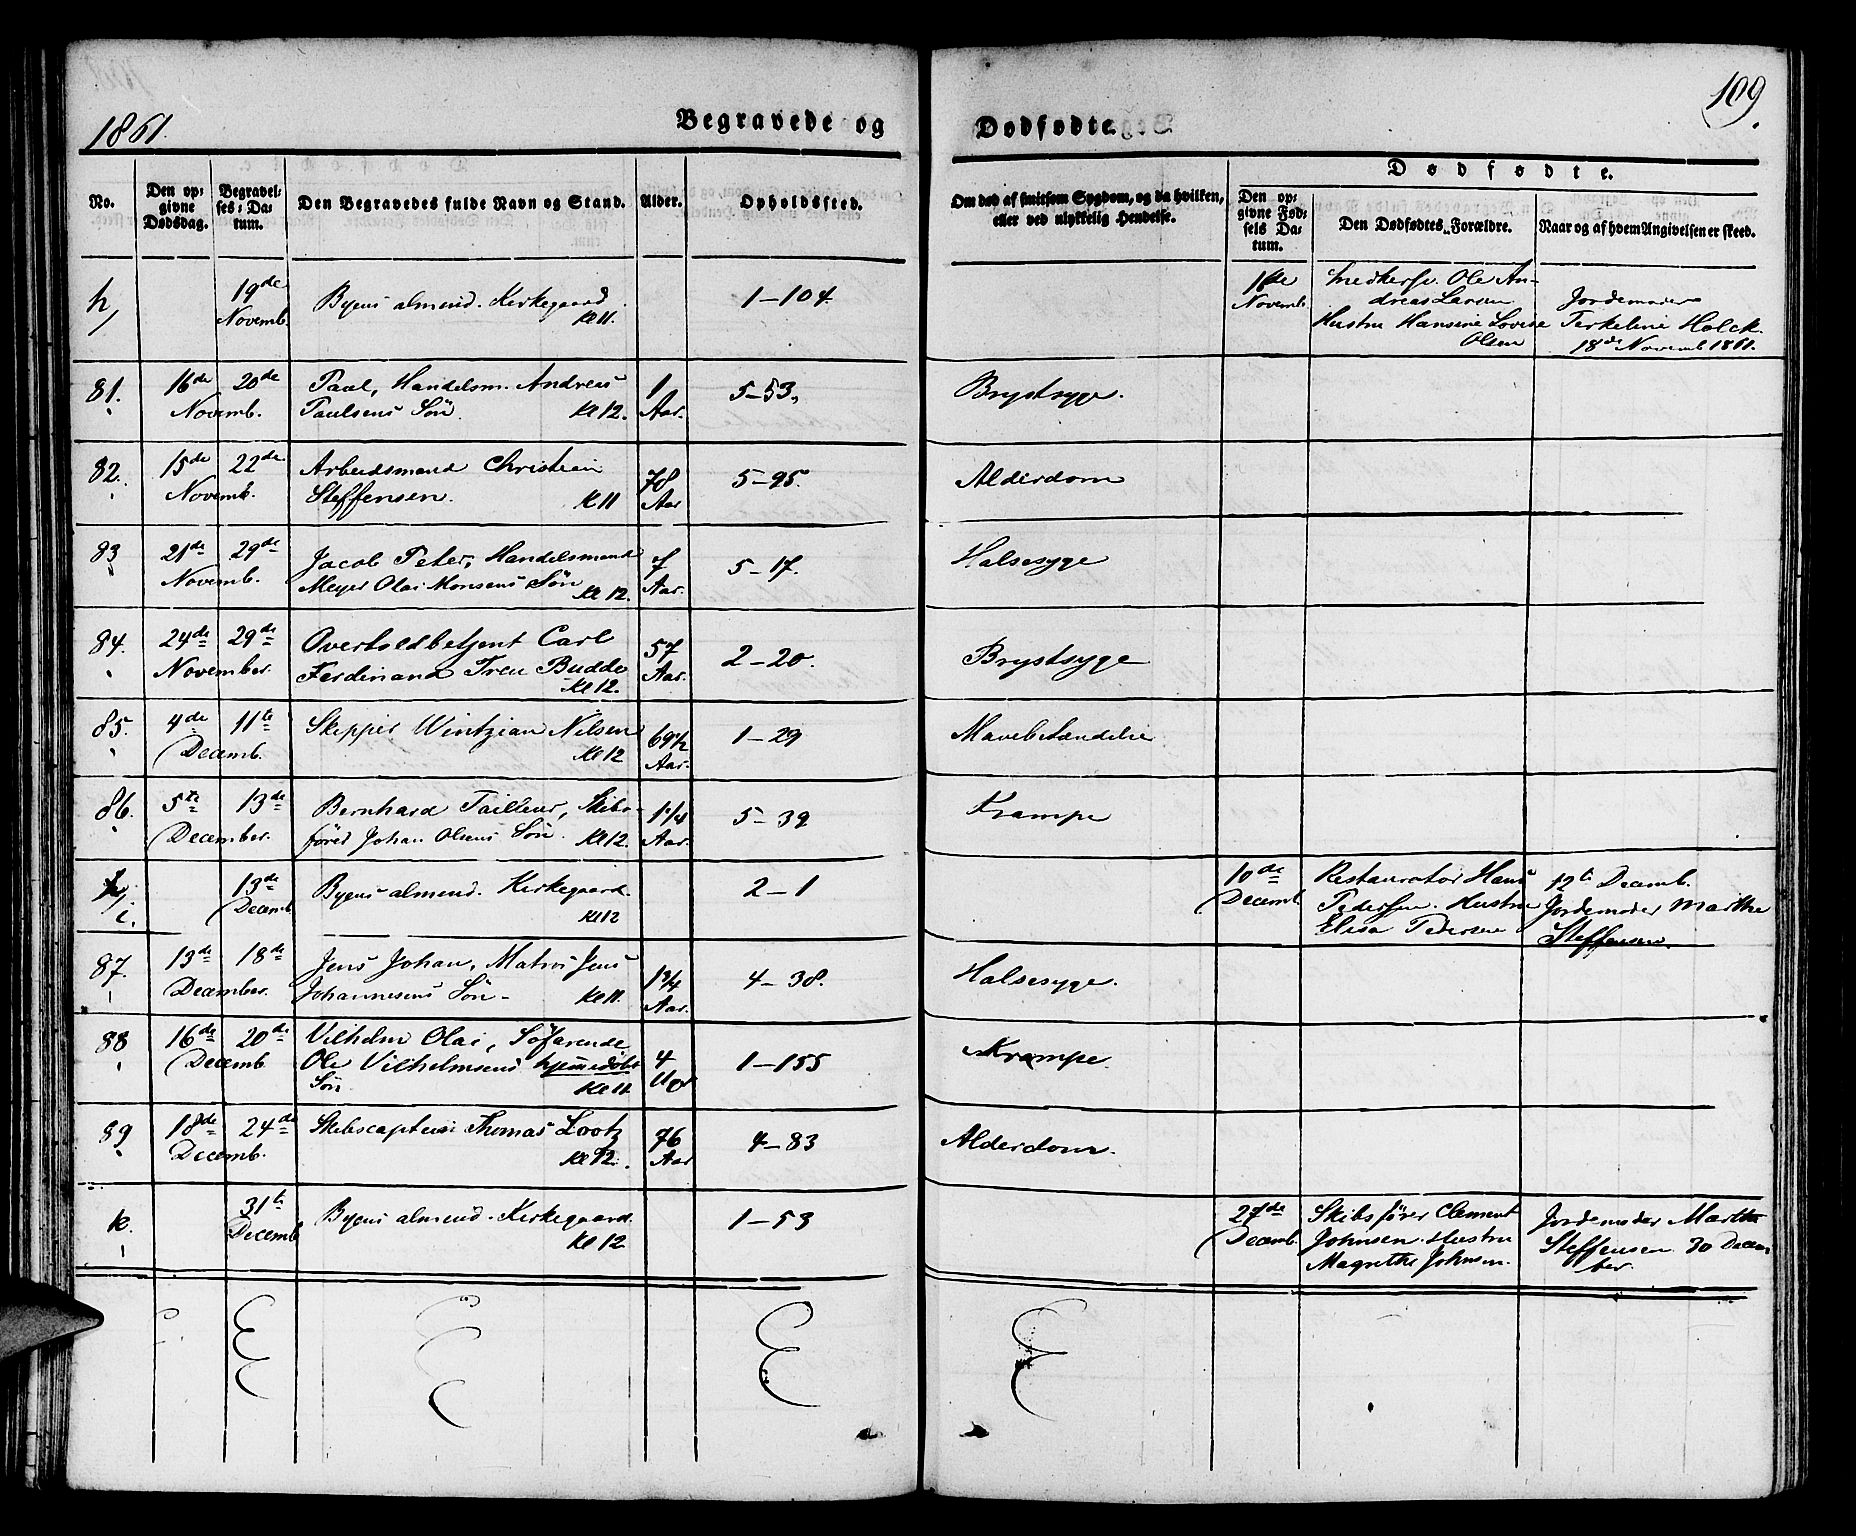 1861.
Begravede og
Dødfødte.
109.
No.
Den opgivne Dødsdag.
Begravelses-Datum.
Den Begravedes fulde Navn og Stand.
Alder.
Opholdssted.
Om død af smitsom Sygdom, og da hvilken, eller ved ulykkelig Hendelse.
Dødfødte.
Den opgivne Fødsels Datum.
Den Dødfødtes Forældre.
Naar og af hvem Angivelsen er skeed.
h,
19de Novemb.
Byens almind. Kirkegaard Kl 11.
1-104.
16de Novemb.
Snedkersv. Ole Andreas Larsen
Hustru Hansine Lovise Olsen
Jordemoder
Terkeline Holck
18de Novemb 1861.
81.
16de 20de
Novemb.
Paul, Handelsm. Andreas
Paulsens Søn. Kl 12.
1 Aar.
5-53.
Brystsyge.
82.
15de 22de
Novemb.
Arbeidsmand Christian
Steffensen. Kl 11
78 Aar
5-95.
Alderdom
83
21de 29de
Novemb.
Jacob Peter, Handelsmand
Meyer Olai Monsens Søn Kl 12.
7 Aar.
5-17.
Halsesyge
84.
24de 29de
November.
Overtoldbetjent Carl
Ferdinand Treu Budde
Kl 12.
57 Aar.
2-20.
Brystsyge
85.
4de 11te
Decemb.
Skipper Wintzian Nilsen
Kl 12
69 1/2 Aar.
1-29
Mavebetændelse
86.
5te 13de
December.
Bernhard Tailleur, Skibsfører Johan Olsens Søn. Kl 12.
1 1/4 Aar.
5-39
Krampe
i.
13de Decemb
Byens almind. Kirkegaard.
Kl 12
2-1
10de Decemb
Restauratør Hans
Pedersen. Hustru
Elisa Pedersen
12te Decemb.
Jordemoder Marthe
Steffensen.
87.
13de 18de
December.
Jens Johan, Matros Jens
Johannesens Søn- Kl 11.
1 3/4 Aar.
4-38.
Halsesyge.
88
16de 20de
Decemb
Vilhelm Olai, Søfarende
Ole Vilhelmsens hjemmedøbt
Søn. Kl 11.
4 Uger
1-155
Krampe.
89
18de 24de
Decemb.
Skibscaptein Thomas Lootz
Kl 12.
76 Aar
4-83
Alderdom.
k.
31te Decemb
Byens almind. Kirkegaard.
Kl 12
1-53
27de Decemb.
Skibsfører Clement
Johnsen. Hustru
Magrethe Johnsen.
Jordemoder Marthe
Steffensen 30 December.